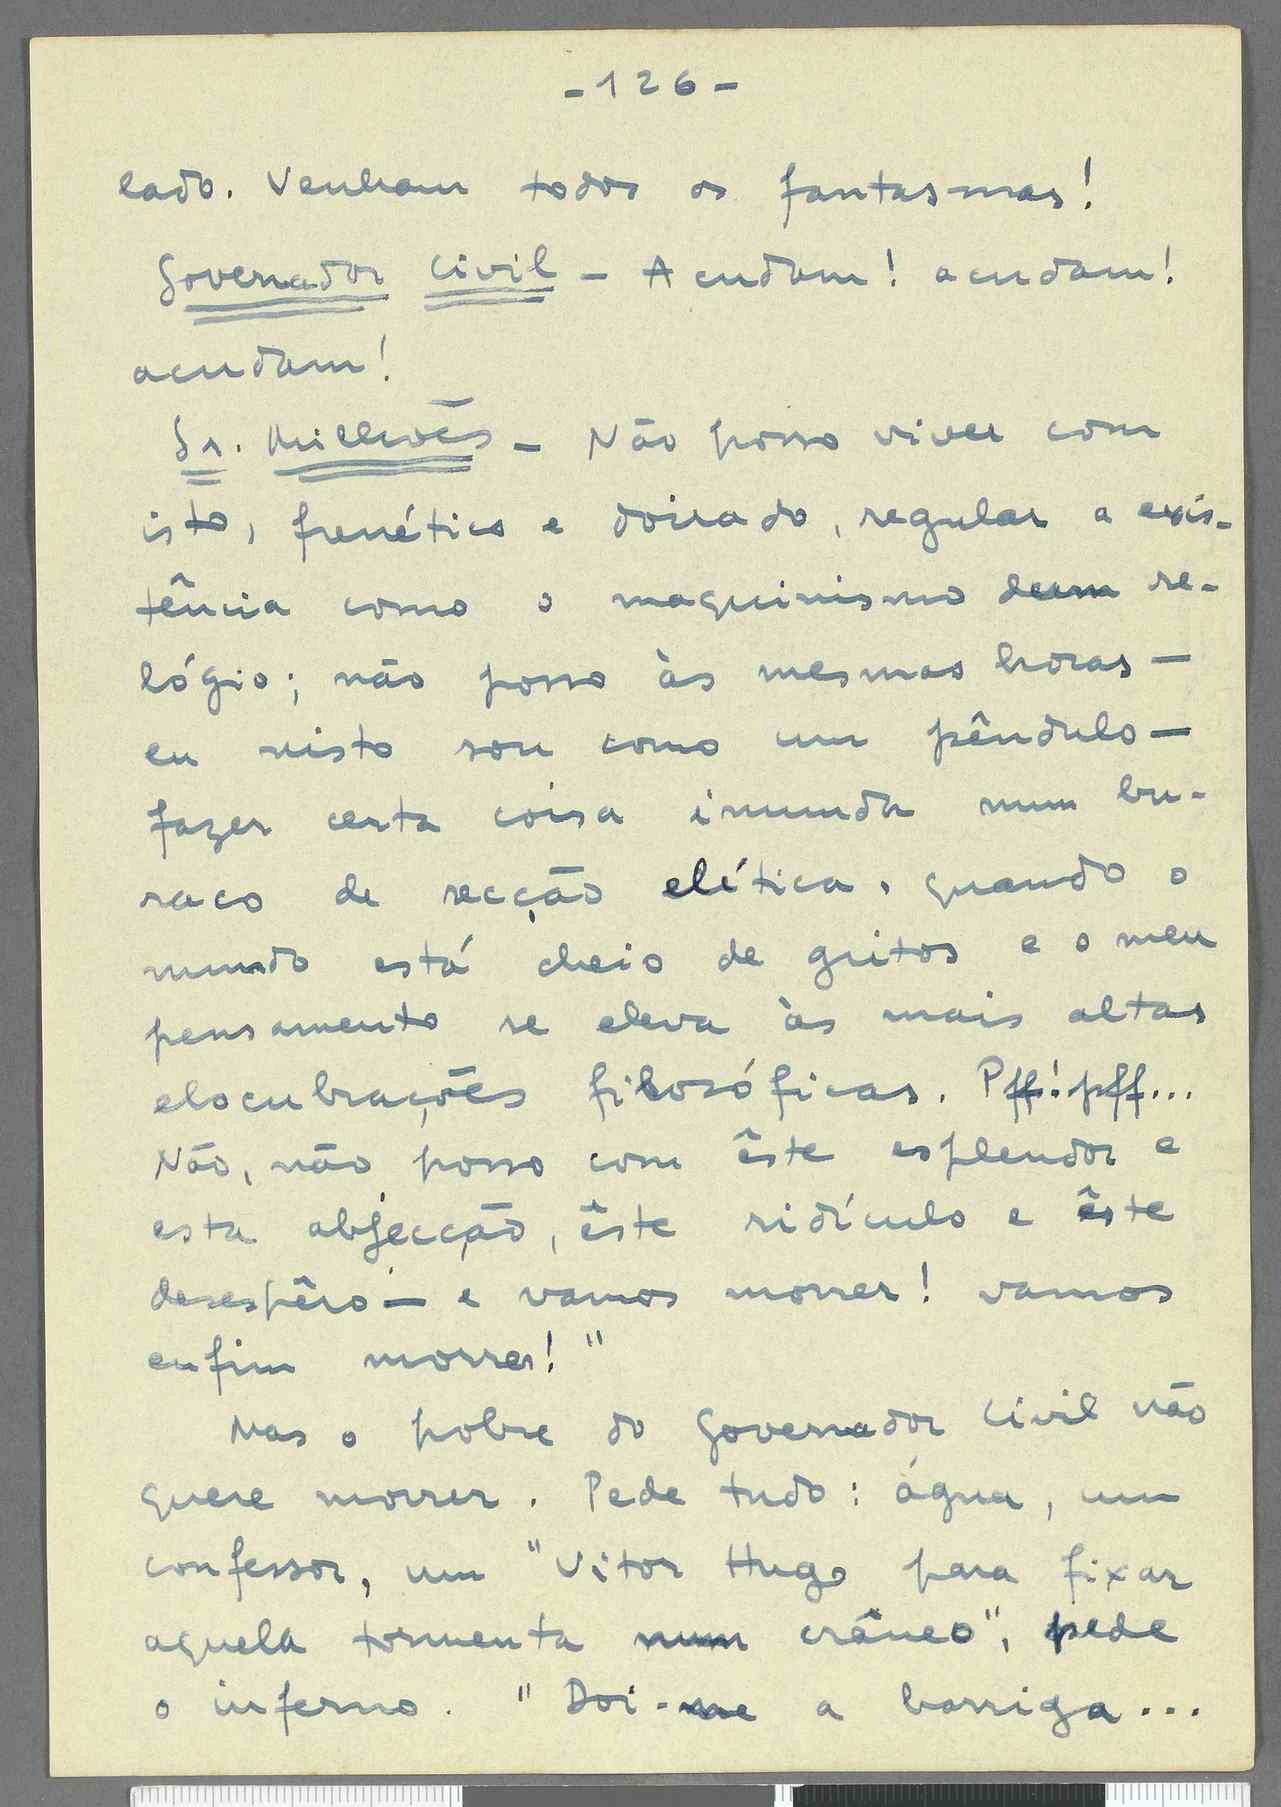 -126-
lado. Venham todos os fantasmas!
Governador Civil - Acudam! acudam!
acudam!
Sr. Milhões - Não posso viver com
isto, frenético e doirado, regular a exis-
tência como o maquinismo dum re-
lógio; não posso às mesmas horas —
eu nisto sou como um pêndulo —
fazer certa coisa imunda num bu-
raco de secção elítica, quando o
mundo está cheio de gritos e o meu
pensamento se eleva às mais altas
elocubrações filosóficas. Pff! pff...
Não, não posso com êste esplendor e
esta abjecção, êste ridículo e êste
desespêro — e vamos morrer! vamos
enfim morrer!"
Mas o pobre do Governador Civil não
quere morrer. Pede tudo: água, um
confessor, um "Vitor Hugo para fixar
aquela tormenta num crâneo", pede
o inferno. "Doi-me a barriga...